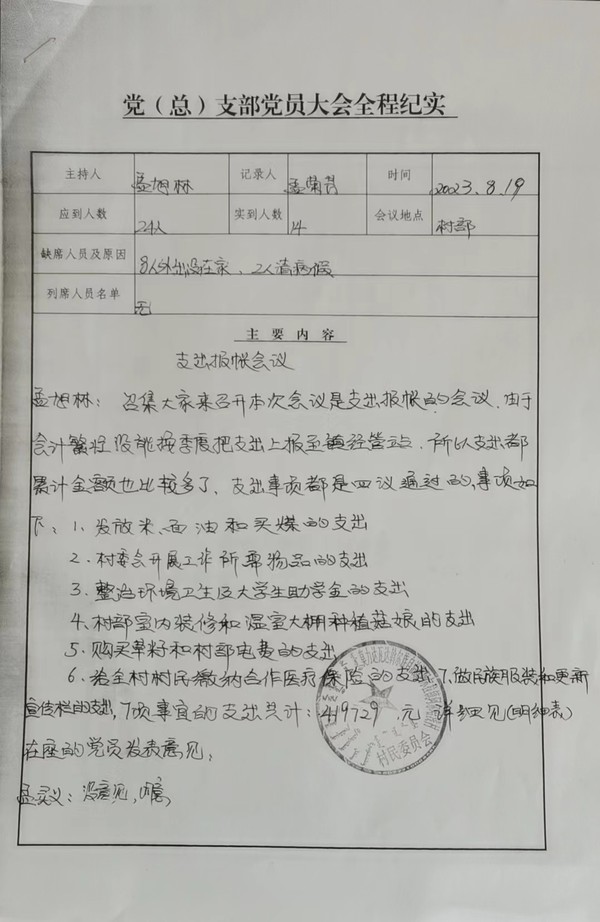 党（总）支部党员大会全程纪实
主持人 孟旭林 记录人 孟 时间 2023.8.19
应到人数 24人 实到人数 14 会议地点 村部
缺席人员及原因 8人外出没在家、2人请病假
列席人员名单 无
主要内容
支出报帐会议
孟旭林：召集大家来召开本次会议是支出报帐的会议.由于
会计 没能按季度把支出上报至镇经管站.所以支出都
累计金额也比较多了，支出事项都是四议通过的，事项如
下：1、发放米、面油和买煤的支出
2、村委会开展工作所需物品的支出
3、整治环境卫生及大学生助学金的支出
4、村部室内装修和温室大棚种植菇娘的支出
5、购买草籽和村部电费的支出
6、为全村村民缴纳合作医疗保险的支出 7、做民族服装和更新
宣传栏的支出，7项事宜的支出共计：419729元 详细见(明细表)
在座的党员发表意见：
孟 ：没意见，同意
村民委员会